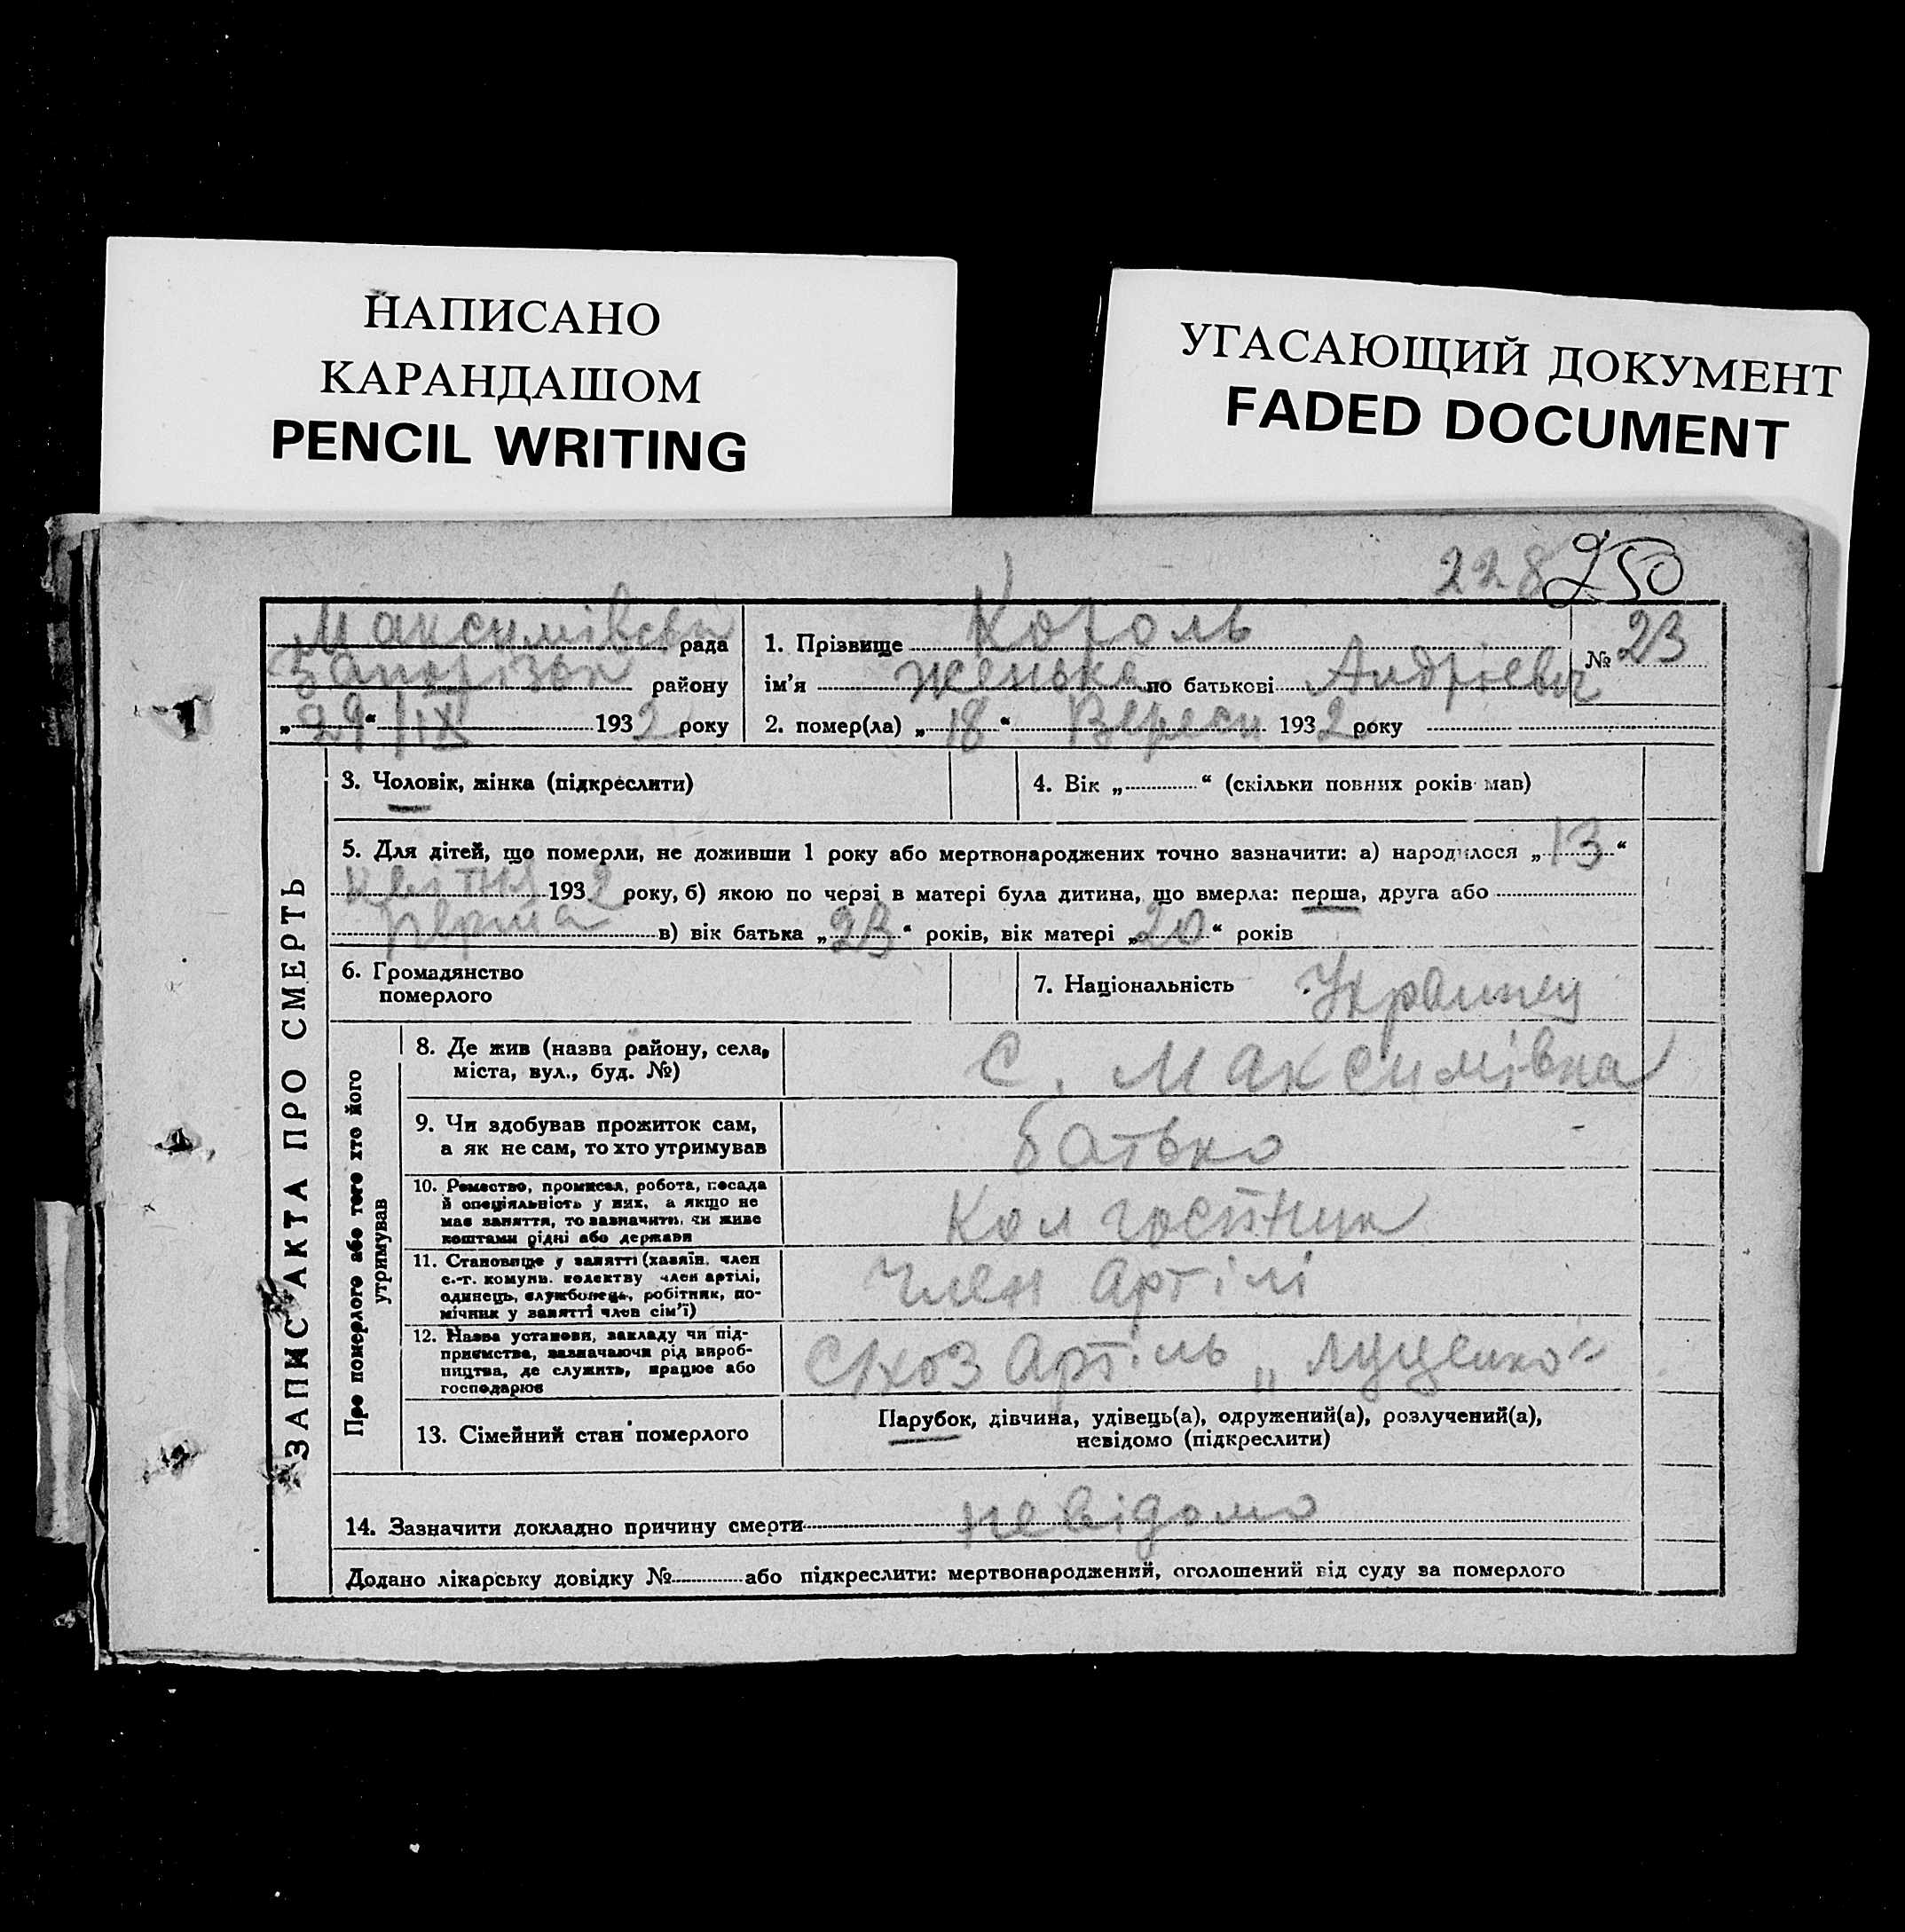 НАПИСАНО
КАРАНДАШОМ
PENCIL WRITING
УГАСАЮЩИЙ ДОКУМЕНТ
FADED DOCUMENT
228 250
Максимівська рада
Запорізьк району
„29“ IX 1932 року
1. Прізвище Король
№ 23
ім'я Женька по батькові Андрієвич
2. помер(ла) „18“ Вересн 1932 року
ЗАПИС АКТА ПРО СМЕРТЬ
3. Чоловік, жінка (підкреслити)
4. Вік „ “ (скільки повних років мав)
5. Для дітей, що померли, не доживши 1 року або мертвонароджених точно зазначити: а) народилося „13“
квітня 1932 року, б) якою по черзі в матері була дитина, що вмерла: перша, друга або
перша в) вік батька „23“ років, вік матері „20“ років
6. Громадянство
померлого
7. Національність Украинец
Про померлого або того хто його
утримував
8. Де жив (назва району, села,
міста, вул., буд. №)
С. Максимівка
9. Чи здобував прожиток сам,
а як не сам, то хто утримував
батько
10. Ремество, промисел, робота, посада
й спеціяльність у них, а якщо не
має заняття, то зазначити, чи живе
коштами рідні або держави
Колгоспник
11. Становище у занятті (хазяїн, член
с.-г. комуни, колективу член артілі,
одинець, службовець, робітник, по-
мічник у занятті член сім'ї)
Член Артілі
12. Назва установи, закладу чи під-
приємства, зазначаючи рід вироб-
ництва, де служить, працює або
господарює
С/хоз Артіль „Луценко“
13. Сімейний стан померлого
Парубок, дівчина, удівець(а), одружений(а), розлучений(а),
невідомо (підкреслити)
14. Зазначити докладно причину смерти невідомо
Додано лікарську довідку № або підкреслити: мертвонароджений, оголошений від суду за померлого